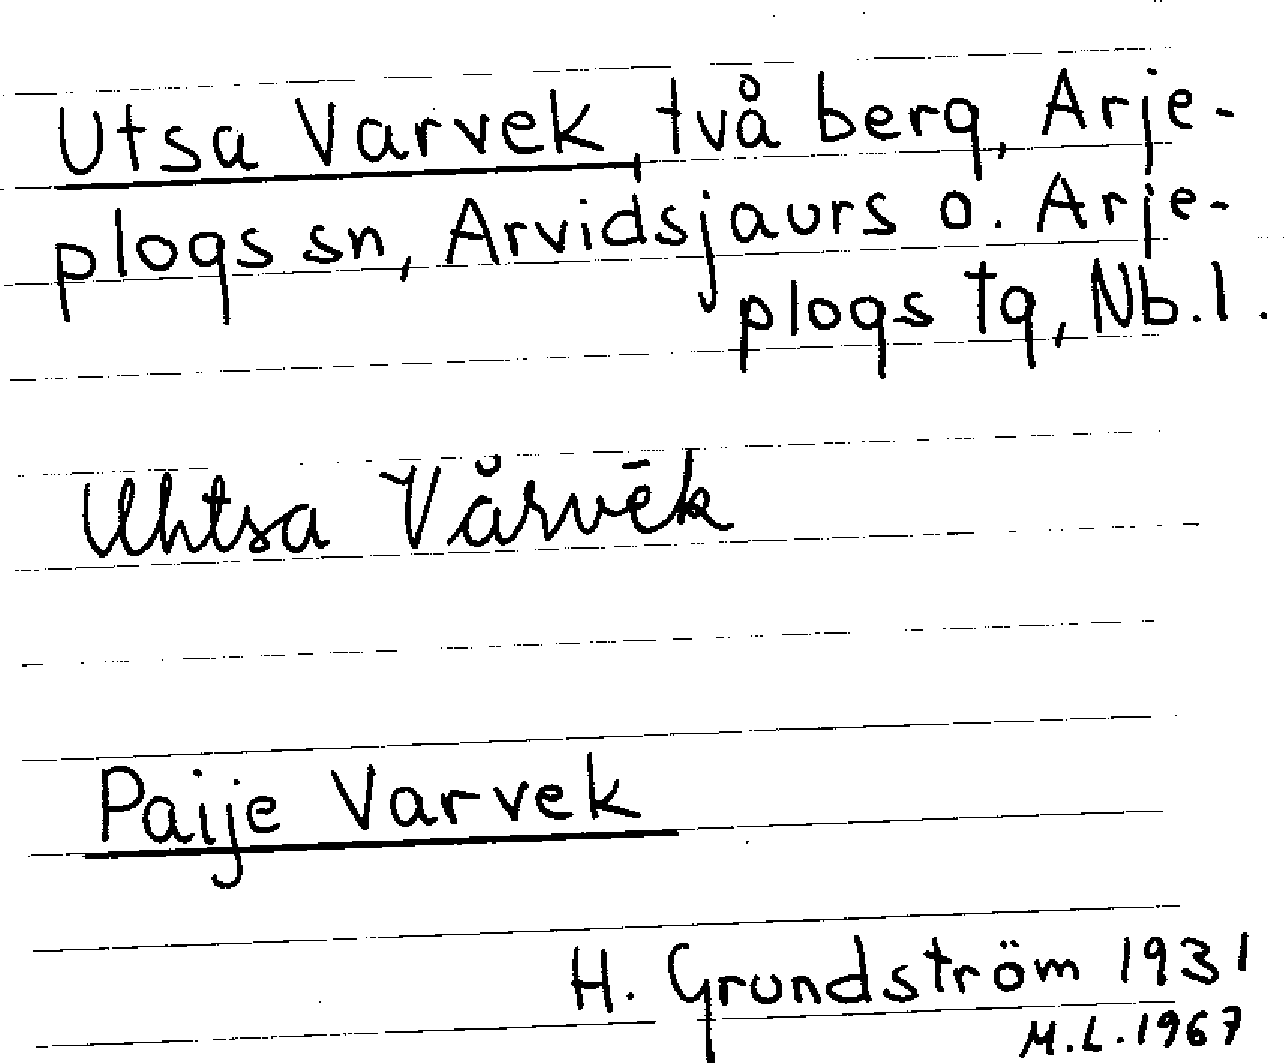 Utsa Varvek, två berg, Arje-
plogs sn, Arvidsjaurs o. Arje-
plogs tg, Nb. l.
Uhtsa Vårvēk
Paije Varvek
H. Grundström 1931
M.L. 1967